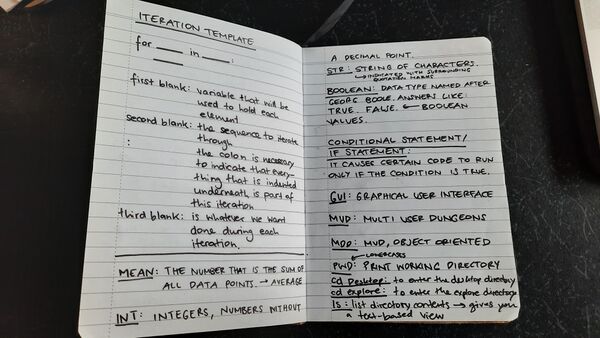 ITERATION TEMPLATE
for ____ in ____ :
____
first blank: variable that will be
used to hold each
element
second blank: the sequence to iterate
through
: the colon is necessary
to indicate that every-
thing that is indented
underneath is part of
this iteration
third blank: is whatever we want
done during each
iteration.
MEAN: THE NUMBER THAT IS THE SUM OF
ALL DATA POINTS. → AVERAGE
INT: INTEGERS, NUMBERS WITHOUT
A DECIMAL POINT.
STR: STRING OF CHARACTERS.
↳ INDICATED WITH SURROUNDING
QUOTATION MARKS
BOOLEAN: DATA TYPE NAMED AFTER
GEORG BOOLE. ANSWERS LIKE:
TRUE. FALSE. ← BOOLEAN
VALUES.
CONDITIONAL STATEMENT/
IF STATEMENT:
IT CAUSES CERTAIN CODE TO RUN
ONLY IF THE CONDITION IS TRUE.
GUI: GRAPHICAL USER INTERFACE
MUD: MULTI USER DUNGEONS
MOO: MUD, OBJECT ORIENTED
↙ LOWERCASES
PWD: PRINT WORKING DIRECTORY
cd Desktop: to enter the desktop directory
cd explore: to enter the explore directory
ls: list directory contents → gives you
a text-based view